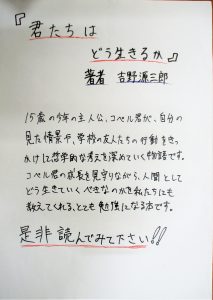 『君たちは
どう生きるか』
著者 吉野源三郎
15歳の今年の主人公、コペル君が、自分の
見た情景や、学校の友人たちの行動をきっ
かけに哲学的な考えを深めていく物語です。
コペル君の成長を見守りながら、人間として
どう生きていくべきなのかを私たちにも
教えてくれる、とても勉強になる本です。
是非読んでみて下さい!!